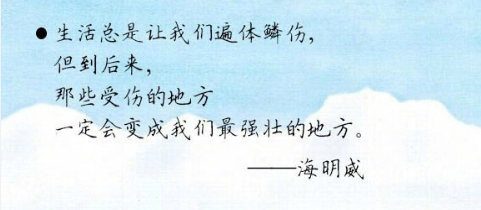 ● 生活总是让我们遍体鳞伤，
但到后来，
那些受伤的地方
一定会变成我们最强壮的地方。
——海明威